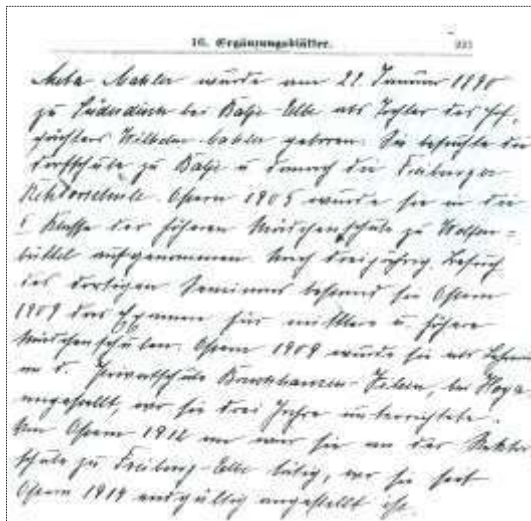 16. Ergänzungsblätter.
Meta Mahler wurde am 22. Januar 1890
zu Süderdeich bei Balje-Elbe als Tochter des Hof-
pächters Wilhelm Mahler geboren. Sie besuchte die
Dorfschule zu Balje u. danach die Freiburger
Rektorschule. Ostern 1905 wurde sie in die
I Klasse der höheren Mädchenschule zu Wolfen=
büttel aufgenommen. Nach dreijährig. Besuch
des dortigen Seminars bestand sie Ostern
1909 das Examen für mittlere u. höhere
Mädchenschulen. Ostern 1909 wurde sie als Lehrerin
an d. Privatschule Bruchhausen-Vilsen, bei Hoya
angestellt, wo sie drei Jahre unterrichtete.
Von Ostern 1912 an war sie an der Rektor
schule zu Freiburg-Elbe tätig, wo sie seit
Ostern 1914 endgültig angestellt ist.